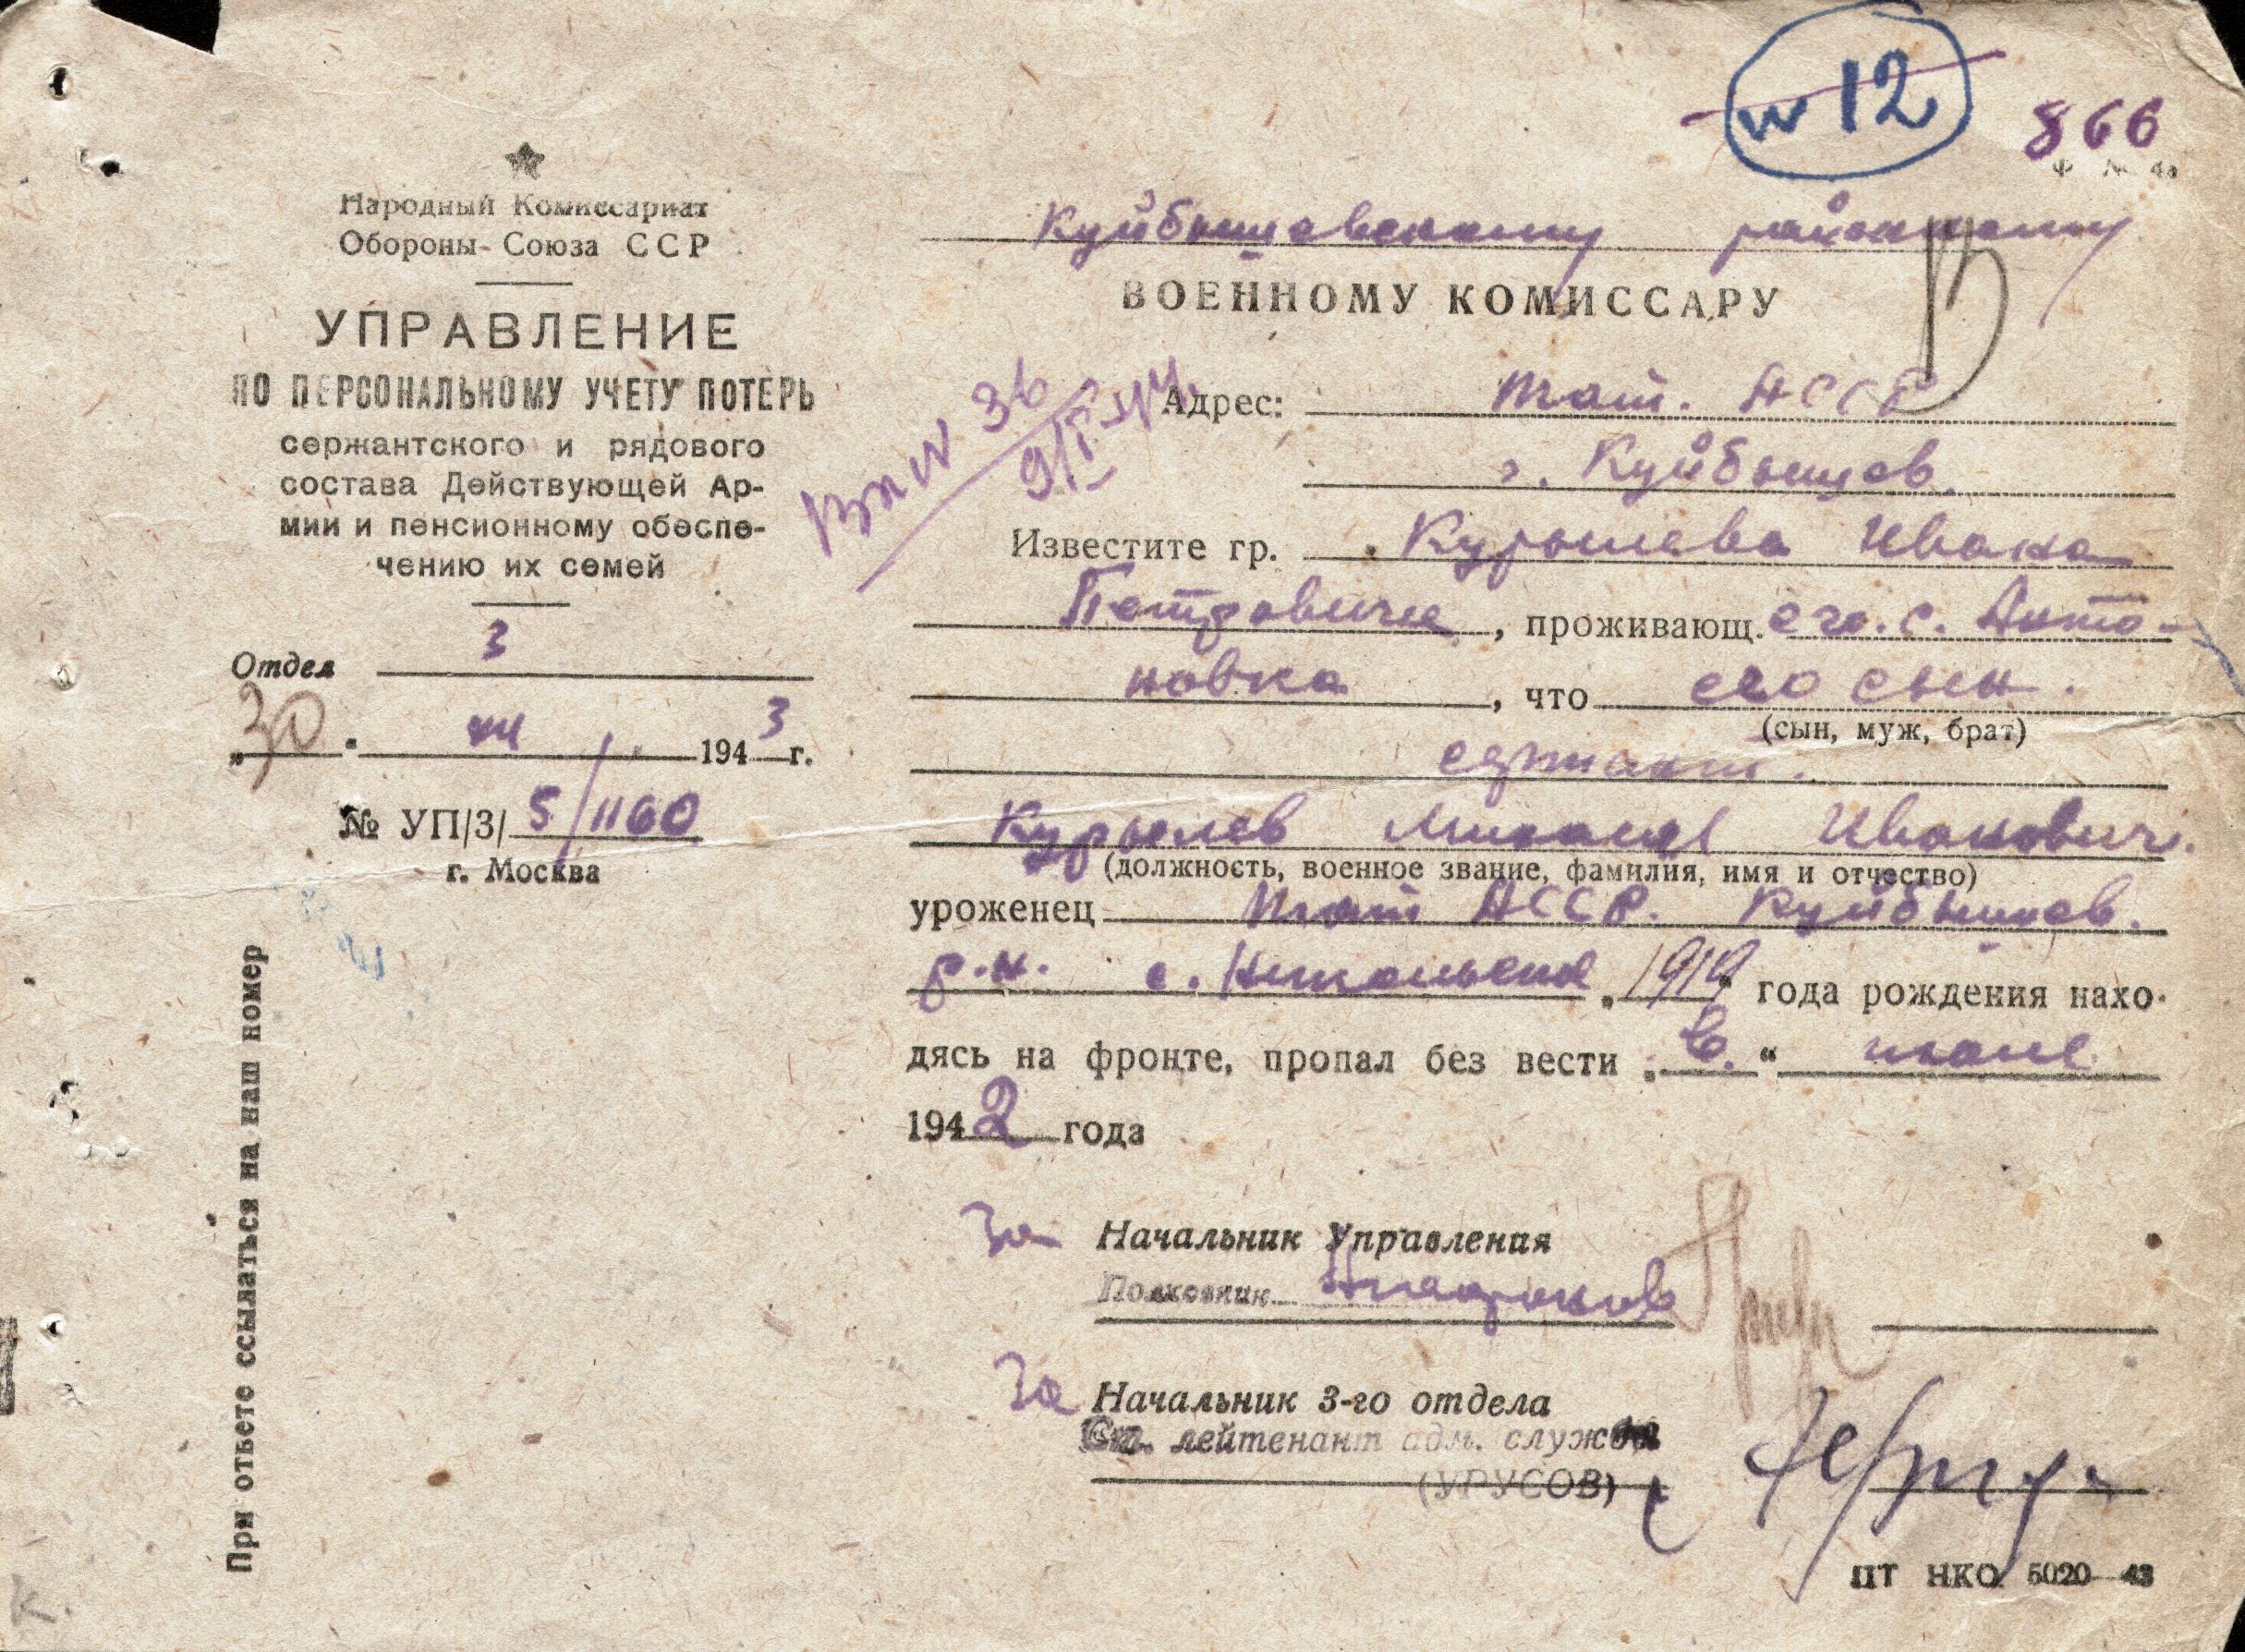 № 12
866
Ф № 43
Народный Комиссариат
Обороны Союза ССР
УПРАВЛЕНИЕ
ПО ПЕРСОНАЛЬНОМУ УЧЕТУ ПОТЕРЬ
сержантского и рядового
состава Действующей Ар-
мии и пенсионному обеспе-
чению их семей
Отдел 3
„30" XII 1943 г.
№ УП/3/ 5/1160
г. Москва
При ответе ссылаться на наш номер
Куйбышевскому районному
ВОЕННОМУ КОМИССАРУ
Вх № 36
Адрес: Тат. АССР
г. Куйбышев.
Известите гр. Курылева Ивана
Петровича, проживающ. его. с. Анто-
новка, что его сын.
(сын, муж, брат)
сержант.
Курылев Михаил Иванович.
(должность, военное звание, фамилия, имя и отчество)
уроженец Тат АССР. Куйбышев.
р.н. с. Никольское 1919 года рождения нахо-
дясь на фронте, пропал без вести „в." июне
1942 года
За Начальник Управления
Полковник
За Начальник 3-го отдела
Ст. лейтенант адм. службы
(УРУСОВ)
ПТ НКО 5020—43
К.